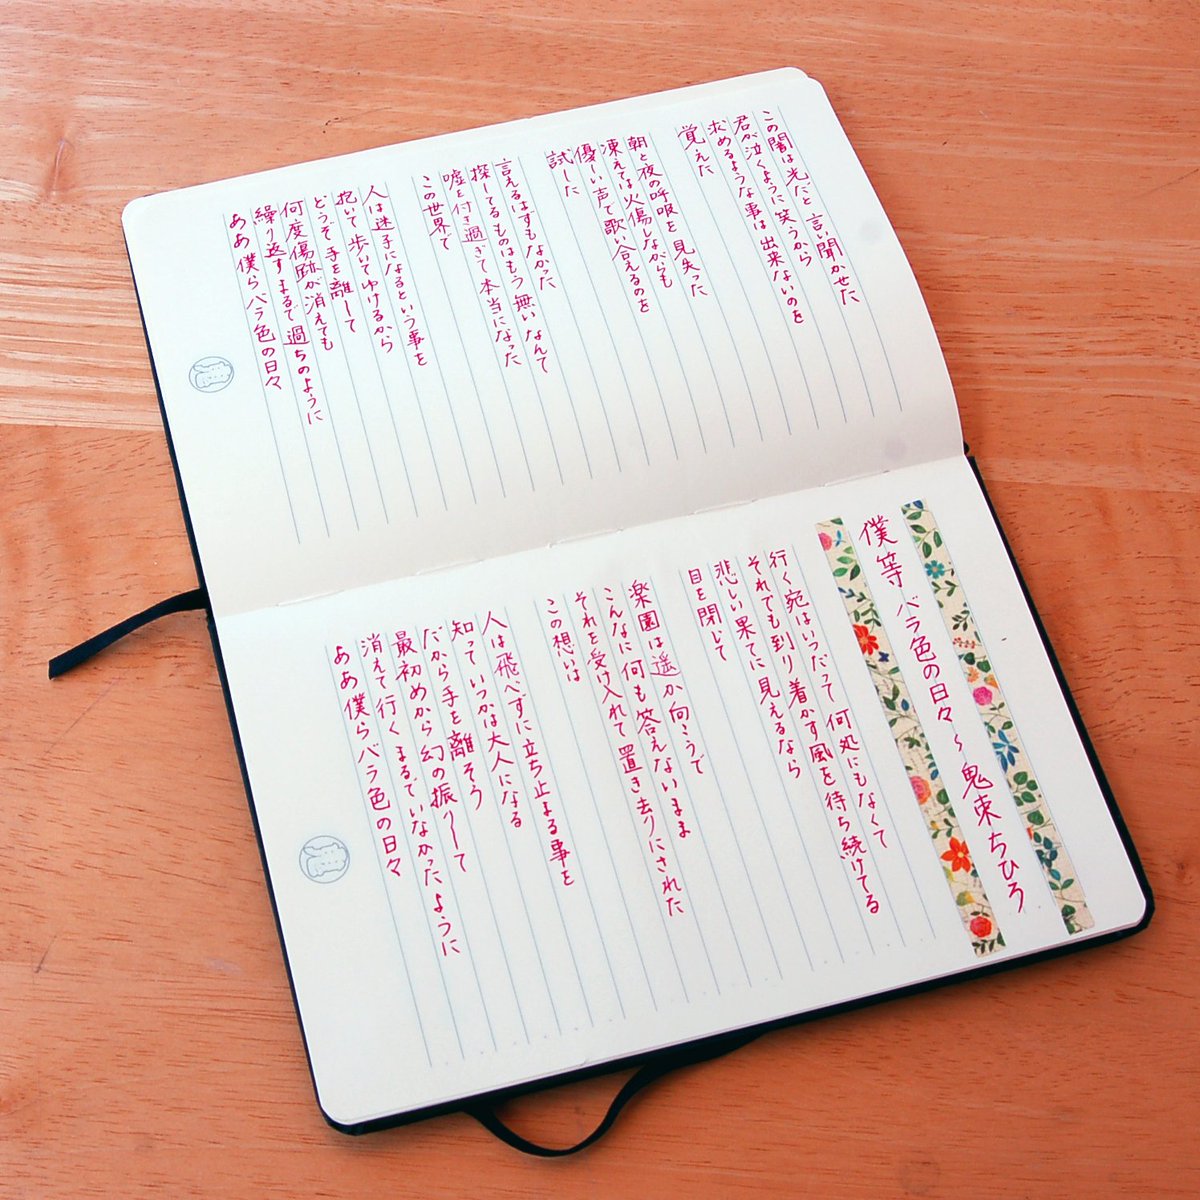 僕等 バラ色の日々〜鬼束ちひろ
行く宛はいつだって何処にもなくて
それでも到り着かす風を待ち続けてる
悲しい果てに見えるなら
目を閉じて
楽園は遥か向こうで
こんなに何も答えないまま
それを受け入れて置き去りにされた
この想いは
人は飛べずに立ち止まる事を
知っていつかは大人になる
だから手を離そう
最初めから幻の振りして
消えて行くまるでいなかったように
ああ僕らバラ色の日々
この闇は光だと言い聞かせた
君が泣くように笑うから
求めるような事は出来ないのを
覚えた
朝と夜の呼吸を見失った
凍えては火傷しながらも
優しい声で歌い合えるのを
試した
言えるはずもなかった
探してるものはもう無いなんて
嘘を付き過ぎて本当になった
この世界で
人は迷子になるという事を
抱いて歩いてゆけるから
どうぞ手を離して
何度傷跡が消えても
繰り返すまるで過ちのように
ああ僕らバラ色の日々